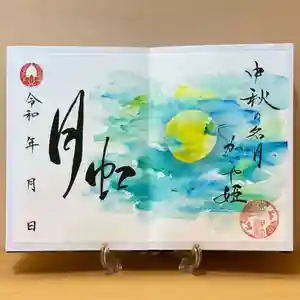 中秋の名月
かぐや姫
月虹
令和 年 月 日